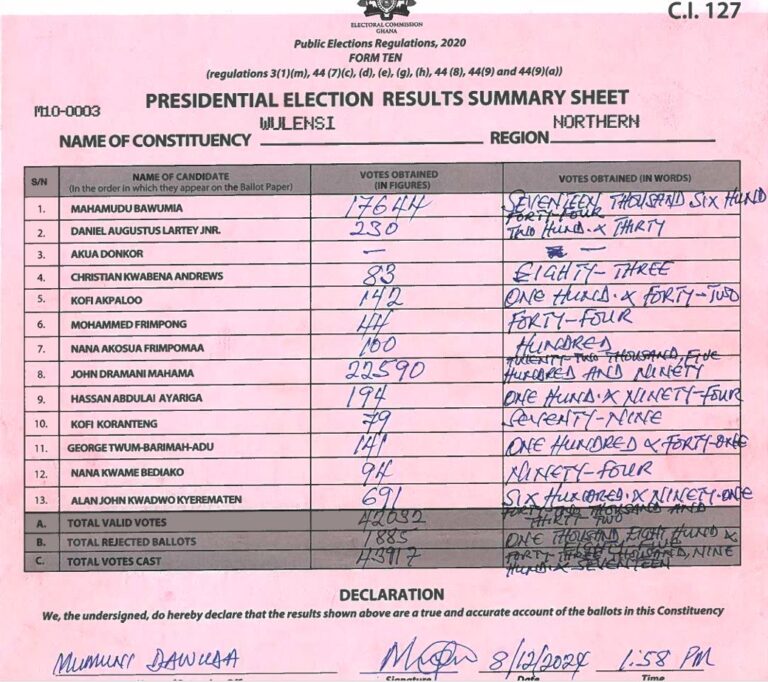 C.I. 127
ELECTORAL COMMISSION
GHANA
Public Elections Regulations, 2020
FORM TEN
(regulations 3(1)(m), 44 (7)(c), (d), (e), (g), (h), 44 (8), 44(9) and 44(9)(a))
M10-0003
PRESIDENTIAL ELECTION RESULTS SUMMARY SHEET
NAME OF CONSTITUENCY WULENSI REGION NORTHERN
S/N NAME OF CANDIDATE (In the order in which they appear on the Ballot Paper) VOTES OBTAINED (IN FIGURES) VOTES OBTAINED (IN WORDS)
1. MAHAMUDU BAWUMIA 17644 SEVENTEEN THOUSAND SIX HUND FORTY-FOUR
2. DANIEL AUGUSTUS LARTEY JNR. 230 TWO HUND. & THIRTY
3. AKUA DONKOR — —
4. CHRISTIAN KWABENA ANDREWS 83 EIGHTY-THREE
5. KOFI AKPALOO 142 ONE HUND. & FORTY-TWO
6. MOHAMMED FRIMPONG 44 FORTY-FOUR
7. NANA AKOSUA FRIMPOMAA 100 HUNDRED
8. JOHN DRAMANI MAHAMA 22590 TWENTY-TWO THOUSAND, FIVE HUNDRED AND NINETY
9. HASSAN ABDULAI AYARIGA 194 ONE HUND. & NINETY-FOUR
10. KOFI KORANTENG 79 SEVENTY-NINE
11. GEORGE TWUM-BARIMAH-ADU 141 ONE HUNDRED & FORTY-ONE
12. NANA KWAME BEDIAKO 94 NINETY-FOUR
13. ALAN JOHN KWADWO KYEREMATEN 691 SIX HUNDRED & NINETY-ONE
A. TOTAL VALID VOTES 42032 FORTY TWO THOUSAND AND THIRTY TWO
B. TOTAL REJECTED BALLOTS 1885 ONE THOUSAND, EIGHT HUND &
C. TOTAL VOTES CAST 43917 FORTY-THREE THOUSAND, NINE HUND. & SEVENTEEN
DECLARATION
We, the undersigned, do hereby declare that the results shown above are a true and accurate account of the ballots in this Constituency
MUMUNI 8/12/2024 1:58 PM
Signature Date Time